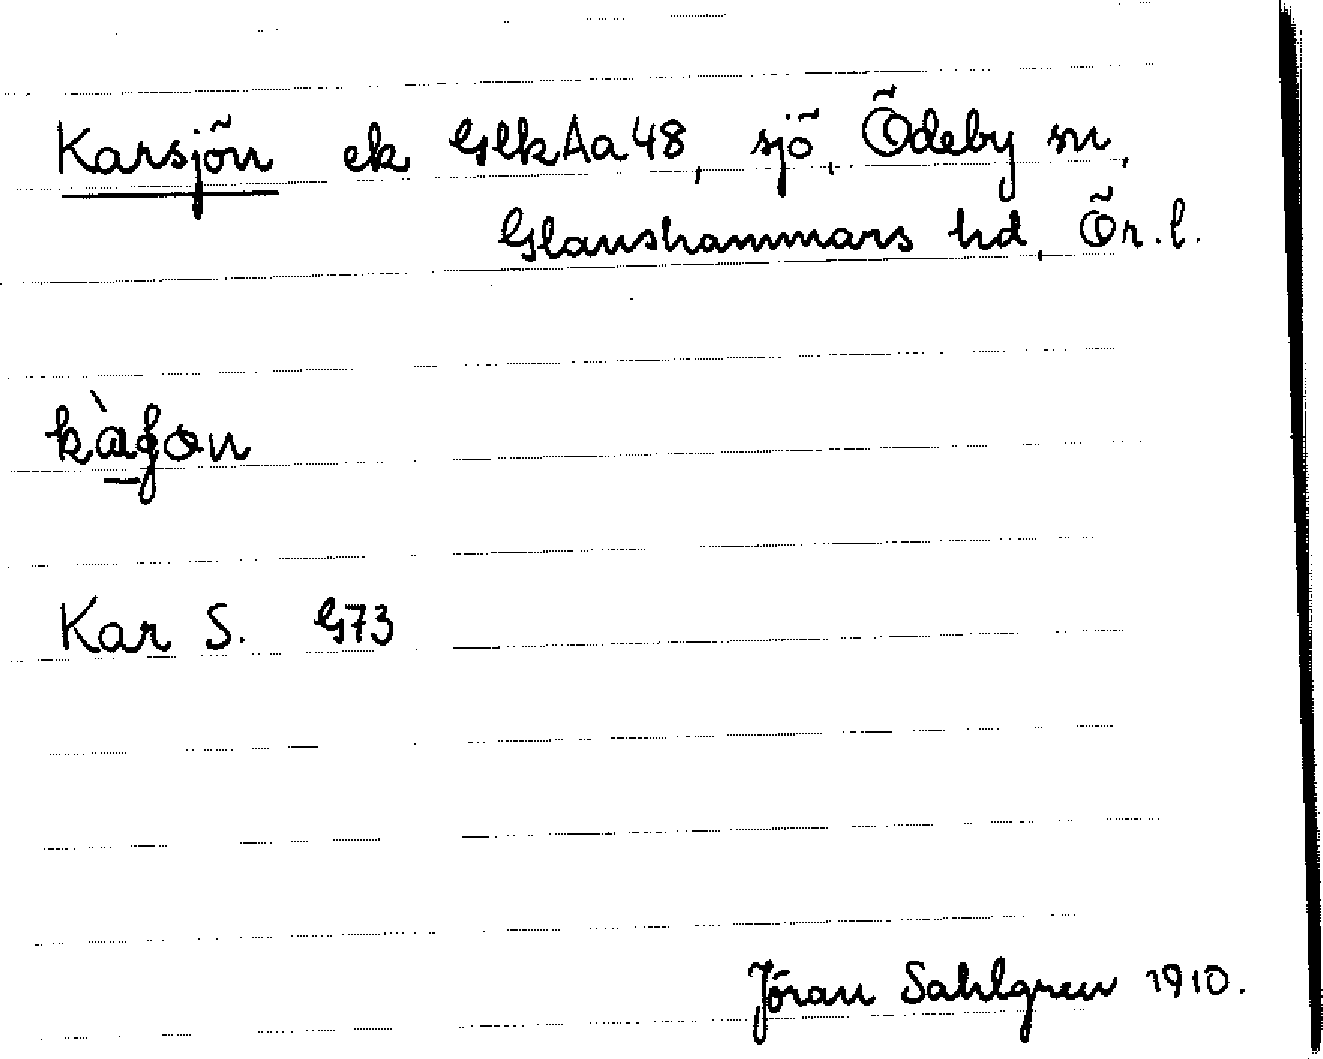 Karsjön ek GlkAa48, sjö, Ödeby sn,
Glanshammars hd, Ör.l.
Kar S. G73
Jöran Sahlgren 1910.